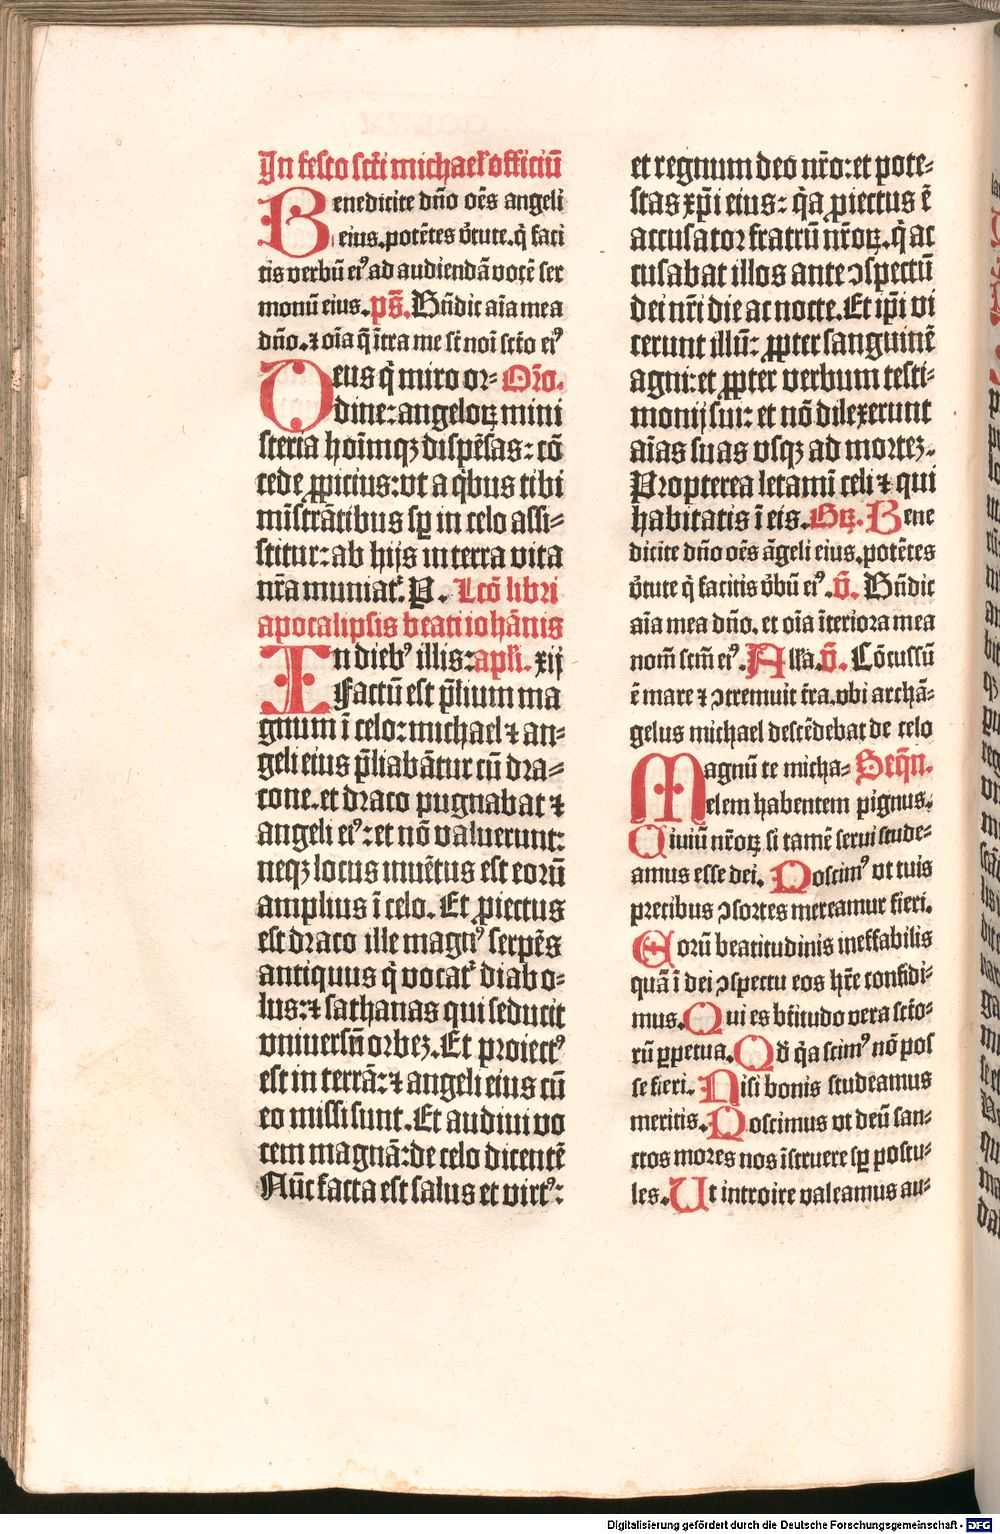 In festo scti michael' officiū
Benedicite dño oēs angeli
eius.potētes v̄tute.q̄ faci
tis verbū eiꝰ ad audiendā vocē ser
monū eius.ps̄.Bñdic aīa mea
dño.⁊ oīa q̄ ītra me sūt noī scto eiꝰ
Deus q̄ miro or⸗ Oŕo.
dine:angeloꝝ mini
steria hoīmqꝫ dispēsas:cō
cede ꝓpicius:vt a q̄bus tibi
mīstrātibus sꝑ in celo assi⸗
stitur:ab hijs in terra vita
nr̄a muniat᷑. P. Lcō libri
apocalipsis beati iohānis
In diebꝰ illis:apl'i. xij
Factū est p̄lium ma
gnum ī celo:michael ⁊ an⸗
geli eius p̄liabātur cū dra⸗
cone.et draco pugnabat ⁊
angeli eiꝰ:et nō valuerunt:
neqꝫ locus inuētus est eorū
amplius ī celo. Et ꝓiectus
est draco ille magnꝰ serpēs
antiquus q̄ vocat᷑ diabo⸗
lus:⁊ sathanas qui seducit
vniuersū orbeꝫ. Et proiectꝰ
est in terrā:⁊ angeli eius cū
eo missi sunt. Et audiui vo
cem magnā:de celo dicentē
Nūc facta est salus et virtꝰ:
et regnum deo nr̄o:et pote⸗
stas xp̄i eius: q̄a ꝓiectus ē
accusator fratrū nr̄oꝝ.q̄ ac
cusabat illos ante ɔspectū
dei nr̄i die ac nocte. Et ip̄i vi
cerunt illū: ꝓpter sanguinē
agni:et ꝓpter verbum testi⸗
monij sui: et nō dilexerunt
aīas suas vsqꝫ ad morteꝫ.
Propterea letamī celi ⁊ qui
habitatis ī eis. Gꝝ. Bene
dicite dño oēs āgeli eius.potētes
v̄tute q̄ facitis v̄bū eiꝰ. v̄. Bñdic
aīa mea dño. et oīa īteriora mea
nom̄ scm̄ eiꝰ. Alła. v̄. Cōcussū
ē mare ⁊ ɔtremuit t̄ra.vbi archā⸗
gelus michael descēdebat de celo
Magnū te micha⸗ Seqñ.
elem habentem pignus.
Ciuiū nr̄oꝝ si tamē serui stude⸗
amus esse dei. Noscimꝰ vt tuis
precibus ɔsortes mereamur fieri.
Eorū beatitudinis ineffabilis
quā ī dei ɔspectu eos hr̄e confidi⸗
mus. Qui es bt̄itudo vera sctō⸗
rū ꝑpetua. Qđ q̄a scimꝰ nō pos
se fieri. Nisi bonis studeamus
meritis. Noscimus vt deū san⸗
ctos mores nos īstruere sꝑ postu⸗
les. Ut introire valeamus au⸗
Digitalisierung gefördert durch die Deutsche Forschungsgemeinschaft - DFG